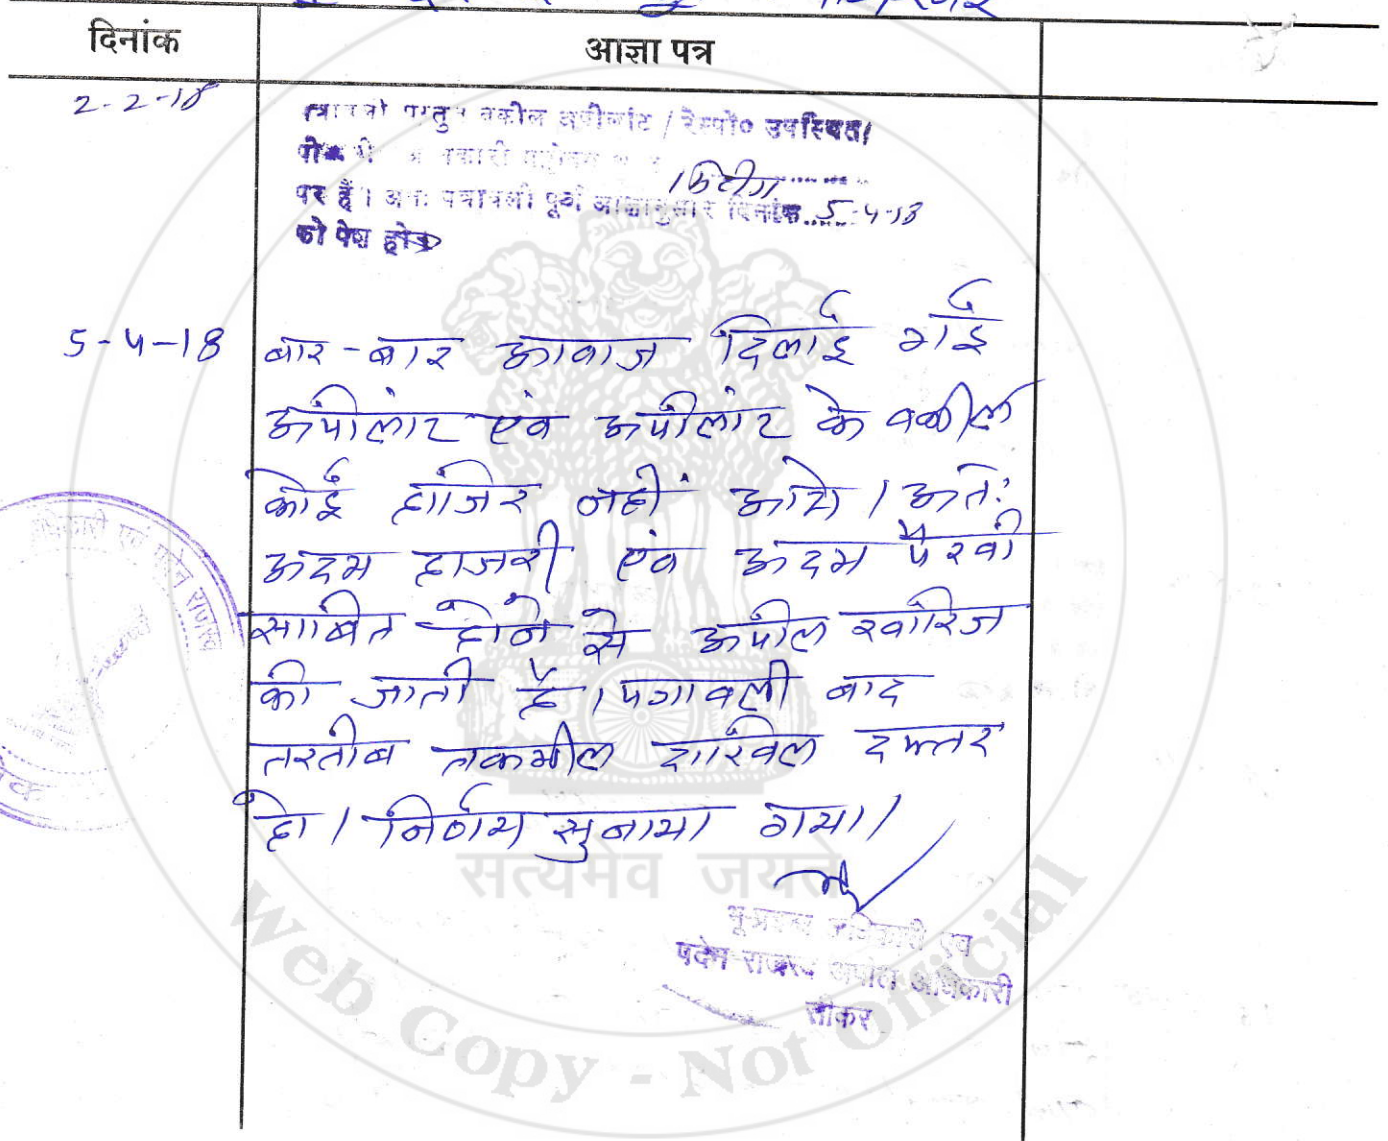 दिनांक
आज्ञा पत्र
2-2-18
वकील अपीलांट / रेस्पो० उपस्थित।
पर हैं। अतः पत्रावली पूर्व आज्ञानुसार दिनांक 5-4-18
को पेश हो
5-4-18
बार-बार आवाज दिलाई गई
अपीलांट एवं अपीलांट के वकील
कोई हाजिर नहीं आये। अतः
अदम हाजरी एवं अदम पैरवी
साबित होने से अपील खारिज
की जाती है। पत्रावली बाद
तरतीब तकमील दाखिल दफ्तर
हो। निर्णय सुनाया गया।
सत्यमेव जयते
भू-प्रबन्ध अधिकारी एवं
पदेन राजस्व अपील अधिकारी
सीकर
एवं पदेन राजस्व
Web Copy - Not Official